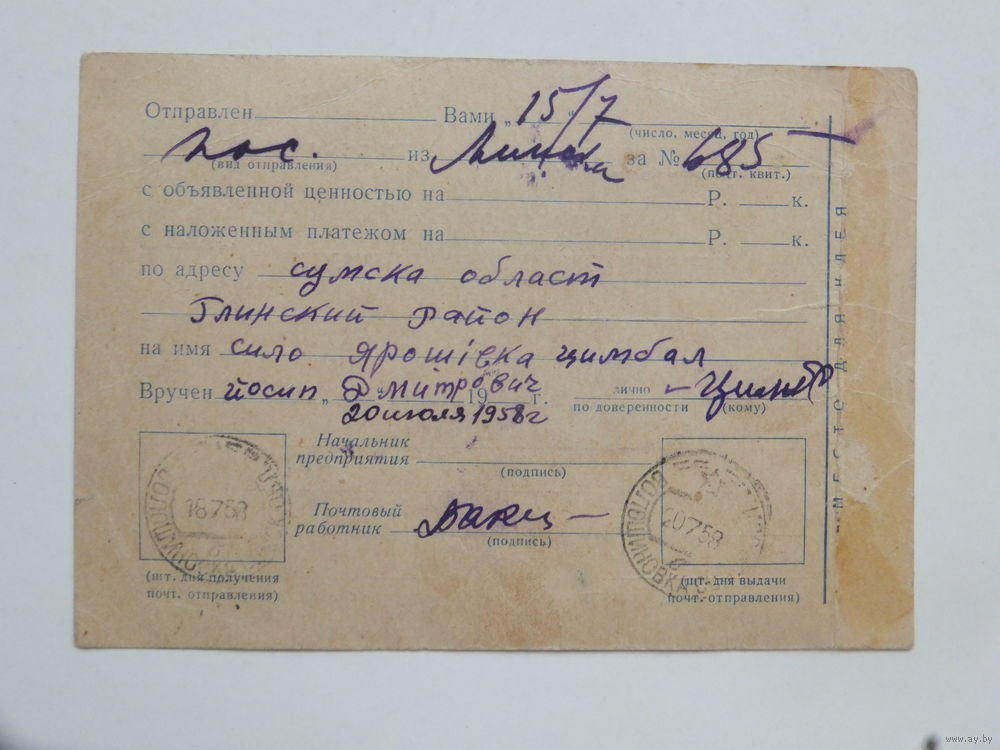 Отправлен Вами „ 15/7
(число, месяц, год)
пос. из за № 685
(вид отправления) (почт. квит.)
с объявленной ценностью на Р. к.
с наложенным платежом на Р. к.
по адресу сумска област
Глинский район
на имя сило Ярошівка цимбал
Вручен йосип „ Дмитрович 19 г. лично
20 июля 1958 г по доверенности (кому)
Начальник
предприятия
(подпись)
Почтовый
работник
(подпись)
18 7 58
20 7 58
(шт. дня получения
почт. отправления)
(шт. дня выдачи
почт. отправления)
место для клея
www.ay.by